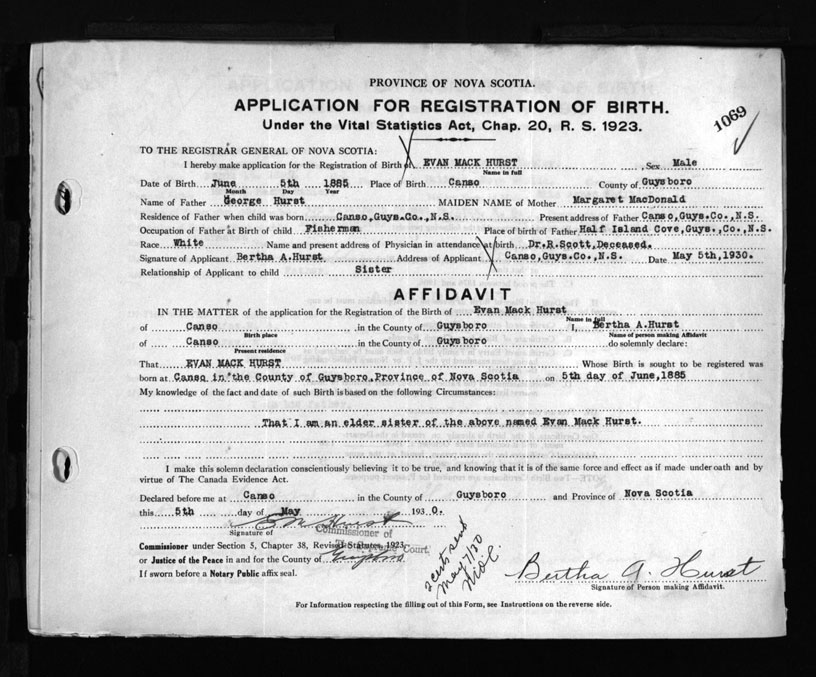 PROVINCE OF NOVA SCOTIA.
APPLICATION FOR REGISTRATION OF BIRTH.
Under the Vital Statistics Act, Chap. 20, R. S. 1923.
1069
TO THE REGISTRAR GENERAL OF NOVA SCOTIA:
I hereby make application for the Registration of Birth of EVAN MACK HURST, Sex Male
Name in full
Date of Birth June 5th 1885 Place of Birth Canso County of Guysboro
Month Day Year
Name of Father George Hurst MAIDEN NAME of Mother Margaret MacDonald
Residence of Father when child was born Canso,Guys.Co.,N.S. Present address of Father Canso,Guys.Co.,N.S.
Occupation of Father at Birth of child Fisherman Place of birth of Father Half Island Cove,Guys.,Co.,N.S.
Race White Name and present address of Physician in attendance at birth Dr.R.Scott,Deceased.
Signature of Applicant Bertha A.Hurst Address of Applicant Canso,Guys.Co.,N.S. Date May 5th,1930.
Relationship of Applicant to child Sister
AFFIDAVIT
IN THE MATTER of the application for the Registration of the Birth of Evan Mack Hurst
Name in full
of Canso in the County of Guysboro I, Bertha A.Hurst
Birth place Name of person making Affidavit
of Canso in the County of Guysboro do solemnly declare:
Present residence
That EVAN MACK HURST Whose Birth is sought to be registered was
born at Canso in the County of Guysboro,Province of Nova Scotia on 5th day of June,1885
My knowledge of the fact and date of such Birth is based on the following Circumstances:
That I am an elder sister of the above named Evan Mack Hurst.
I make this solemn declaration conscientiously believing it to be true, and knowing that it is of the same force and effect as if made under oath and by
virtue of The Canada Evidence Act.
Declared before me at Canso in the County of Guysboro and Province of Nova Scotia
this 5th day of May 1930.
Signature of Hurst Commissioner of
Commissioner under Section 5, Chapter 38, Revised Statutes, 1923 Court,
or Justice of the Peace in and for the County of
If sworn before a Notary Public affix seal.
2 certs sent
May 7/30
Bertha A. Hurst
Signature of Person making Affidavit.
For Information respecting the filling out of this Form, see Instructions on the reverse side.